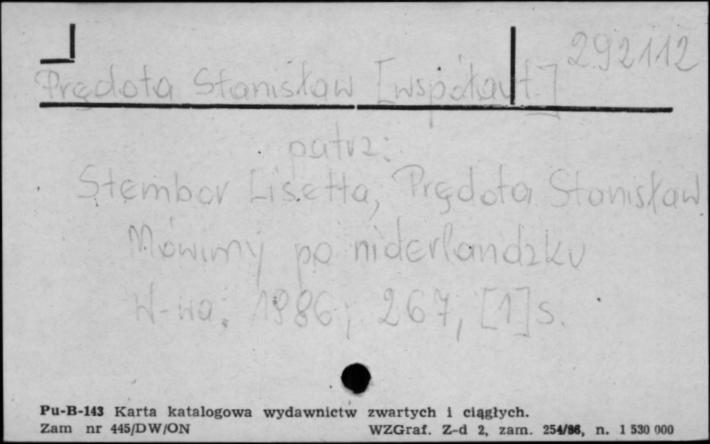 292112
Prędota Stanisław [współaut.]
patrz:
Stembor Lisetta, Prędota Stanisław
Mówimy po niderlandzku
W-wa: 1986; 267, [1] s.
Pu-B-143 Karta katalogowa wydawnictw zwartych i ciągłych.
Zam nr 445/DW/ON WZGraf. Z-d 2, zam. 254/86, n. 1 530 000